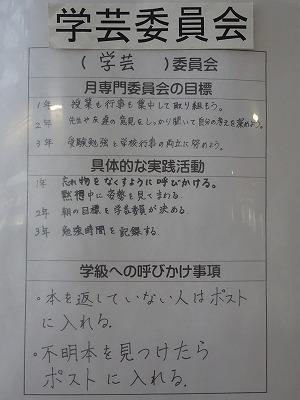 学芸委員会
( 学芸 )委員会
月専門委員会の目標
1年 授業も行事も集中して取り組もう。
2年 先生や友達の意見をしっかり聞いて自分の考えを深めよう。
3年 受験勉強と学校行事の両立に努めよう。
具体的な実践活動
1年 忘れ物をなくすように呼びかける。
黙想中に姿勢を見てまわる。
2年 朝の目標を学芸委員が決める
3年 勉強時間を記録する
学級への呼びかけ事項
・本を返していない人はポスト
に入れる.
・不明本を見つけたら
ポストに入れる.